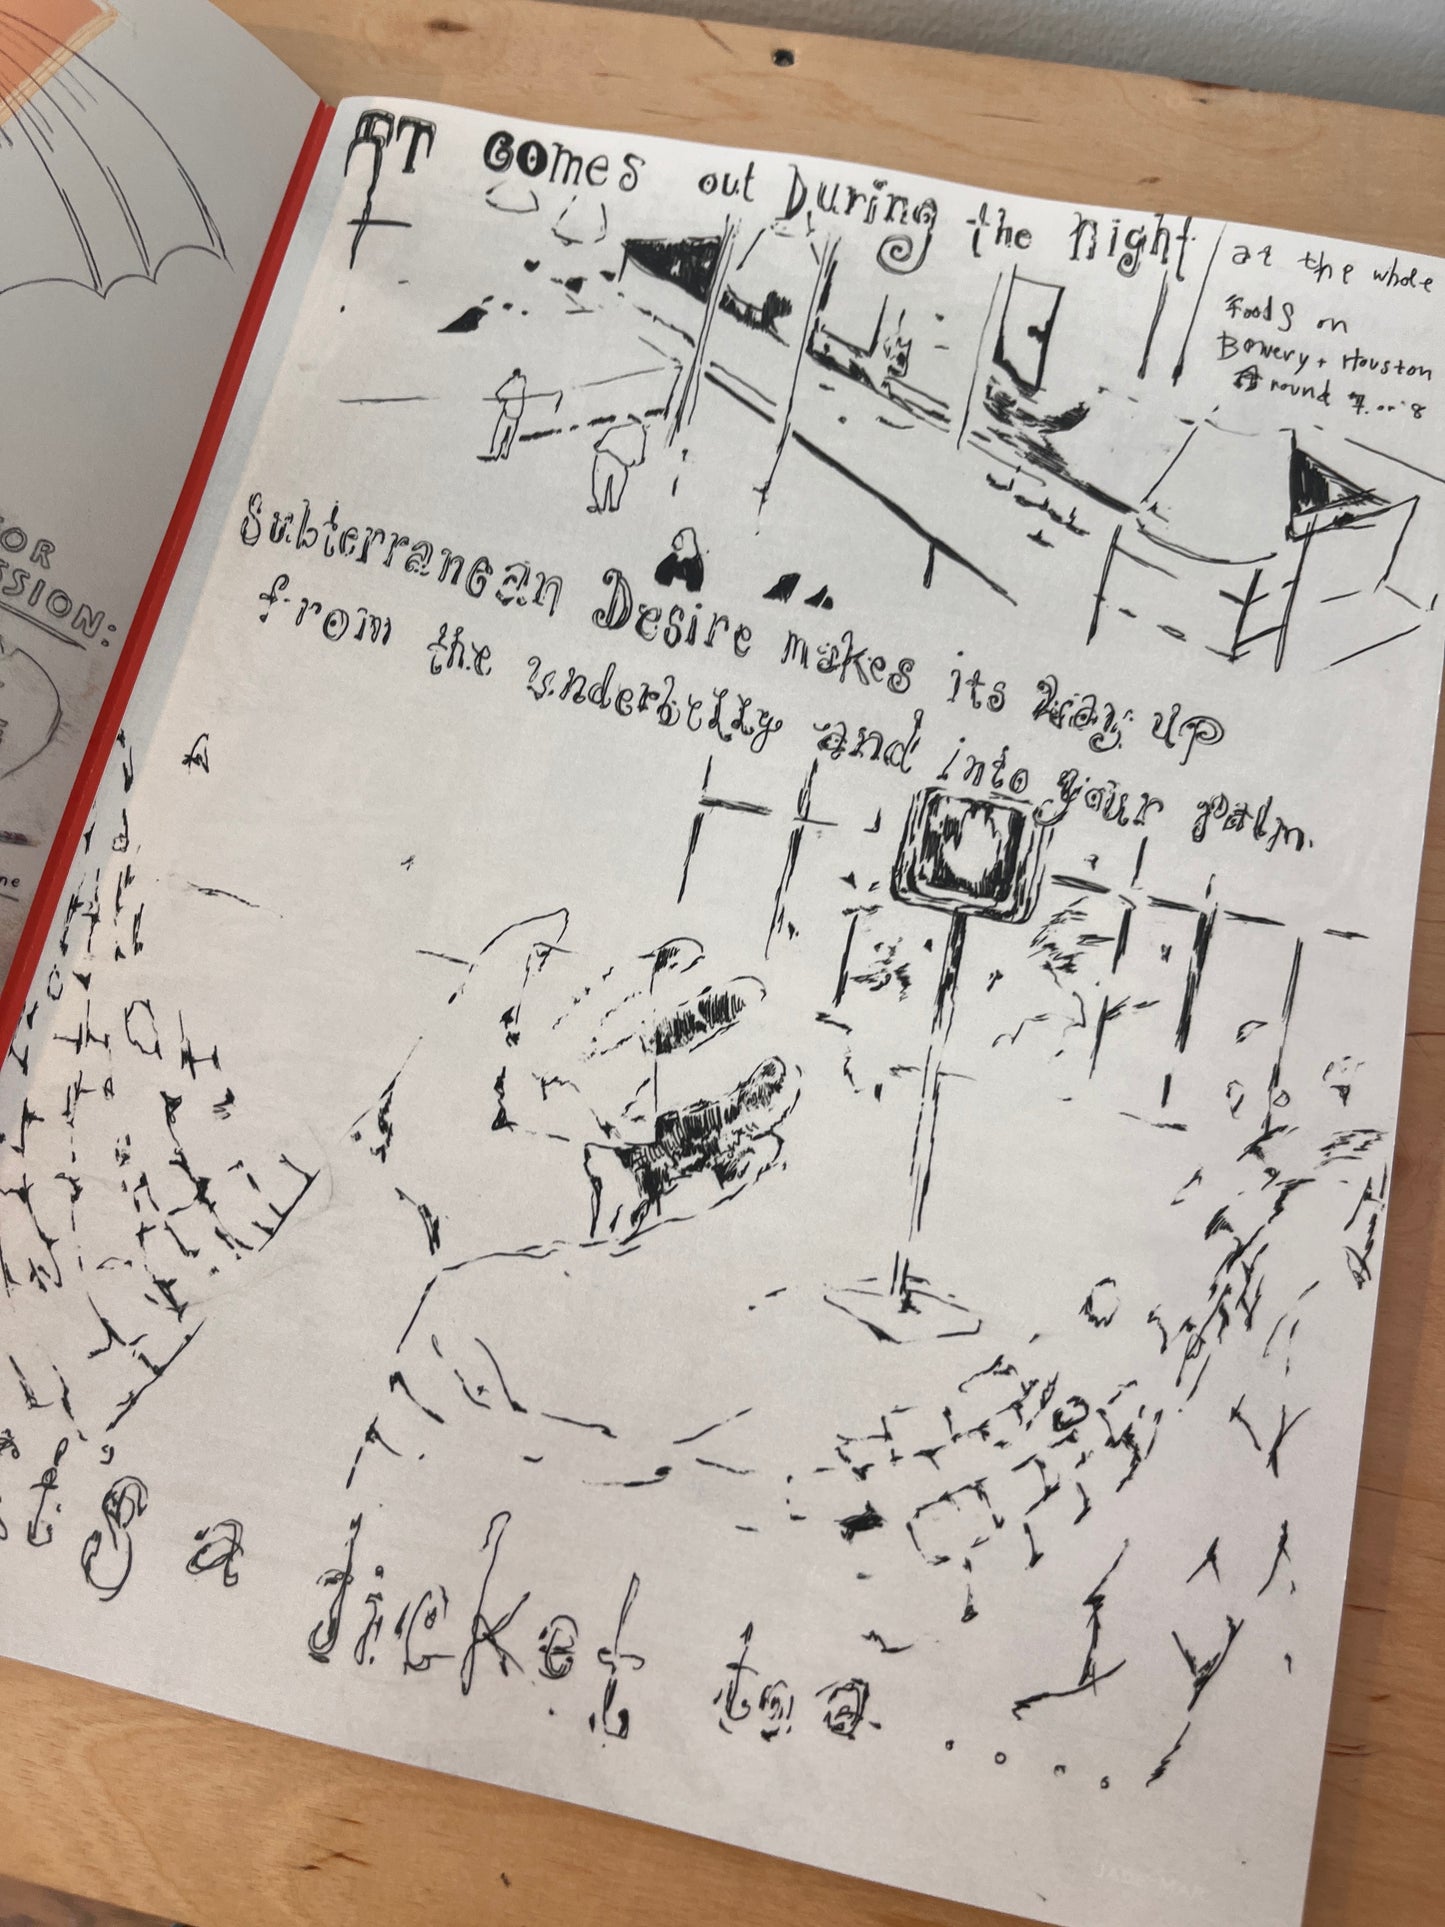 IT Comes out During the night
at the whole
Foods on
Bowery + Houston
Around 7 or 8
Subterranean Desire makes its way up
from the underbelly and into your palm.
OR
SSION:
ne
a ticket to a ....